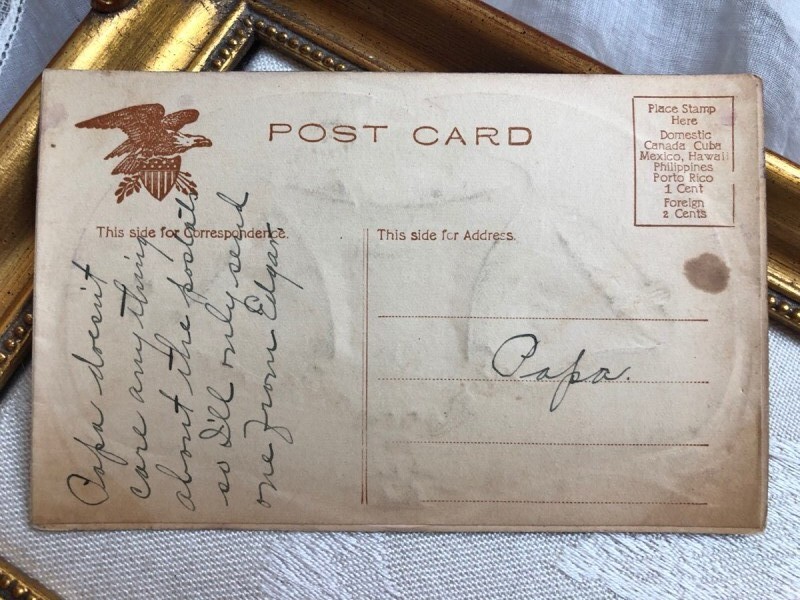 POST CARD
Place Stamp
Here
Domestic
Canada Cuba
Mexico, Hawaii
Philippines
Porto Rico
1 Cent
Foreign
2 Cents
This side for correspondence.
This side for Address.
Papa doesn't
care anything
about the postals
so I'll only send
one from Edgar
Papa.